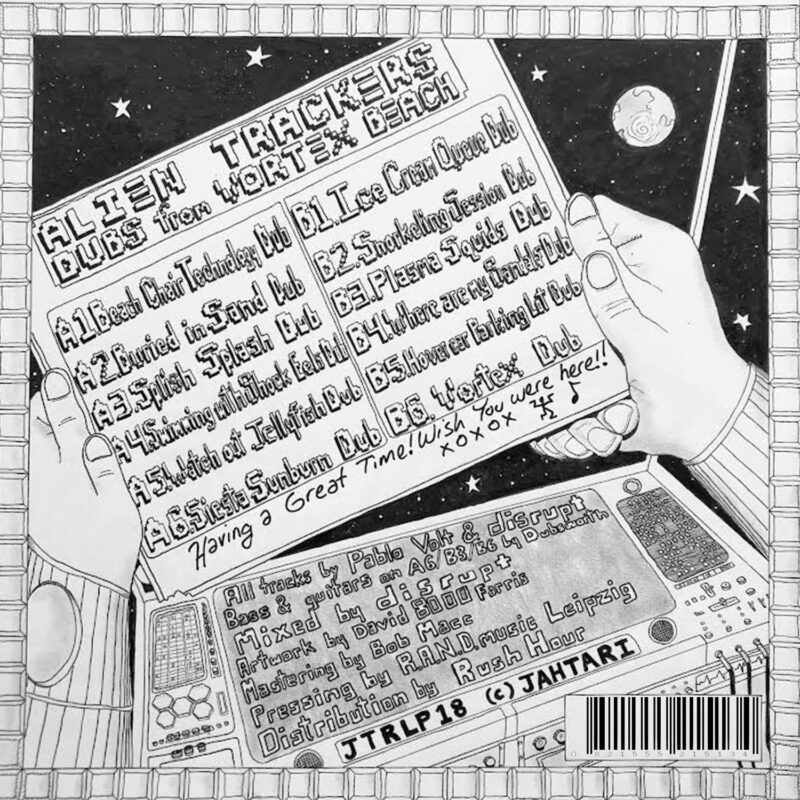 ALIEN TRACKERS
DUBS from VORTEX BEACH
A1.Beach Chair Technology Dub
A2.Buried in Sand Dub
A3.Splish Splash Dub
A4.Swimming with Shock Eels Dub
A5.Watch out Jellyfish Dub
A6.Siesta Sunburn Dub
B1.Ice Cream Queue Dub
B2.Snorkeling Session Dub
B3.Plasma Squids Dub
B4.Where are my Sandals Dub
B5.Hovercar Parking Lot Dub
B6.Vortex Dub
Having a Great Time! Wish You were here!!
xoxox
All tracks by Pablo Volt & disrupt
Bass & guitars on A6/B3/B6 by Dubsworth
Mixed by disrupt
Artwork by David 8000 Farris
Mastering by Bob Macc
Pressing by R.A.N.D. music Leipzig
Distribution by Rush Hour
JTRLP18 (c) JAHTARI
0 821555 215134